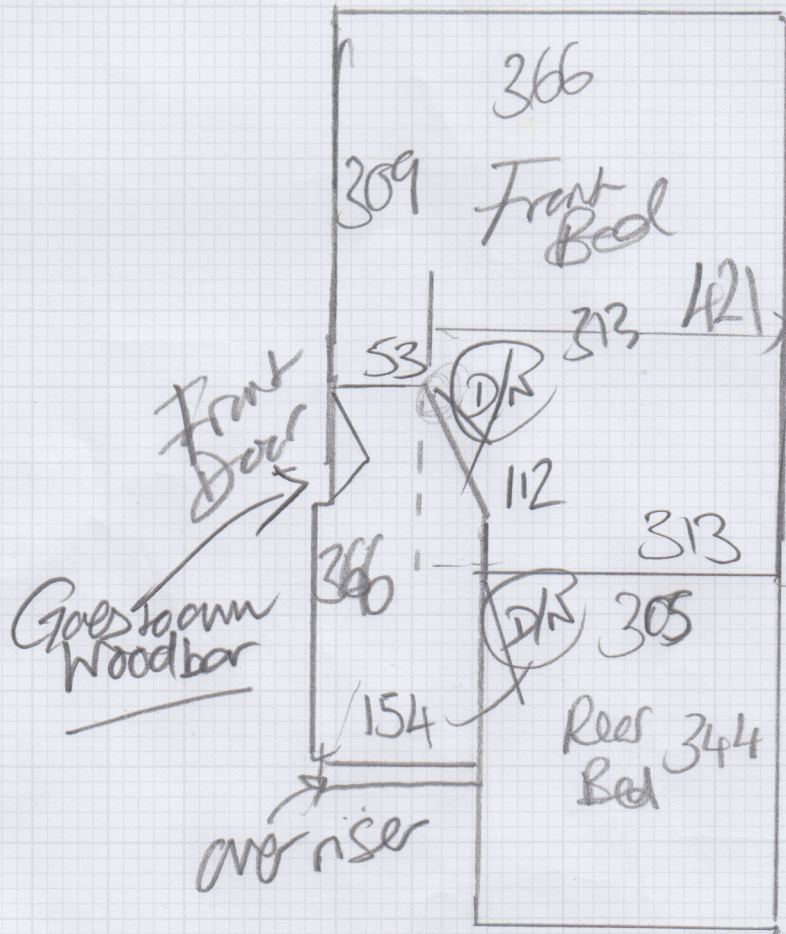 366
309
Front
Bed
421
313
53
D/N
Front
Door
112
313
366
D/N
305
Woodbar
154
Rear
Bed
344
over riser